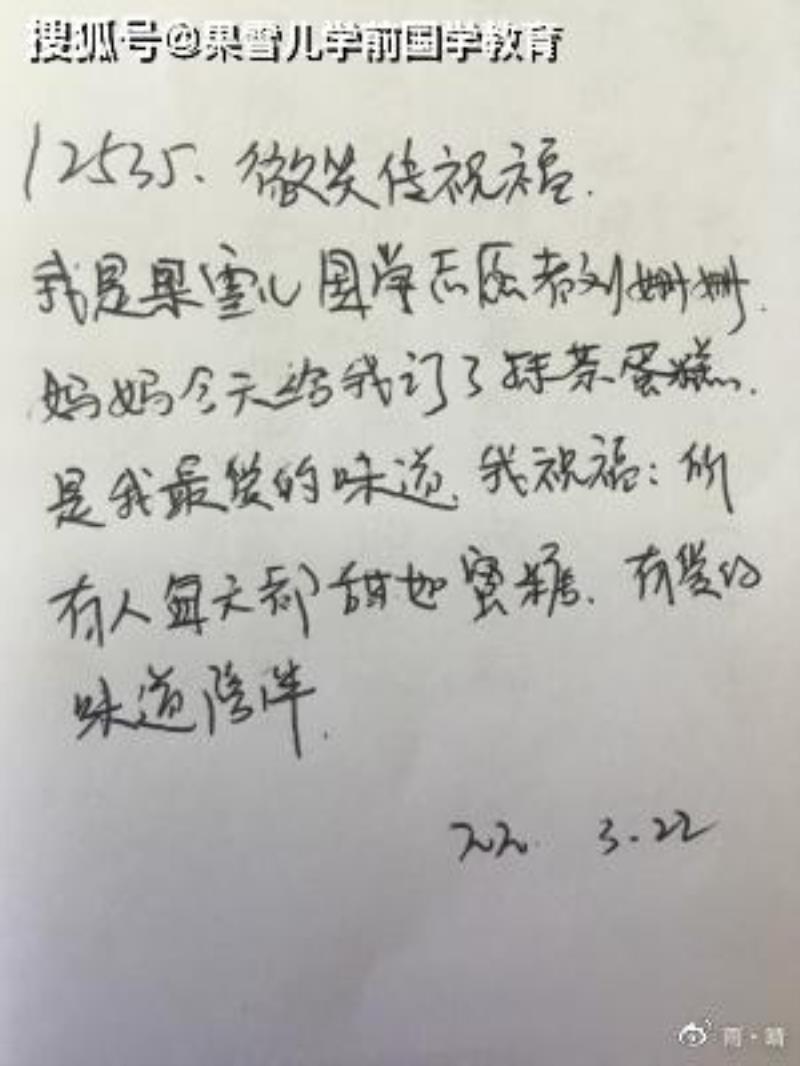 搜狐号@果雪儿学前国学教育
12535、微笑传祝福.
我是果雪儿国学志愿者刘姗姗.
妈妈今天给我订了抹茶蛋糕.
是我最爱的味道.我祝福:所
有人每天都甜如蜜糖.有爱的
味道陪伴.
2022. 3.22
雨·晴